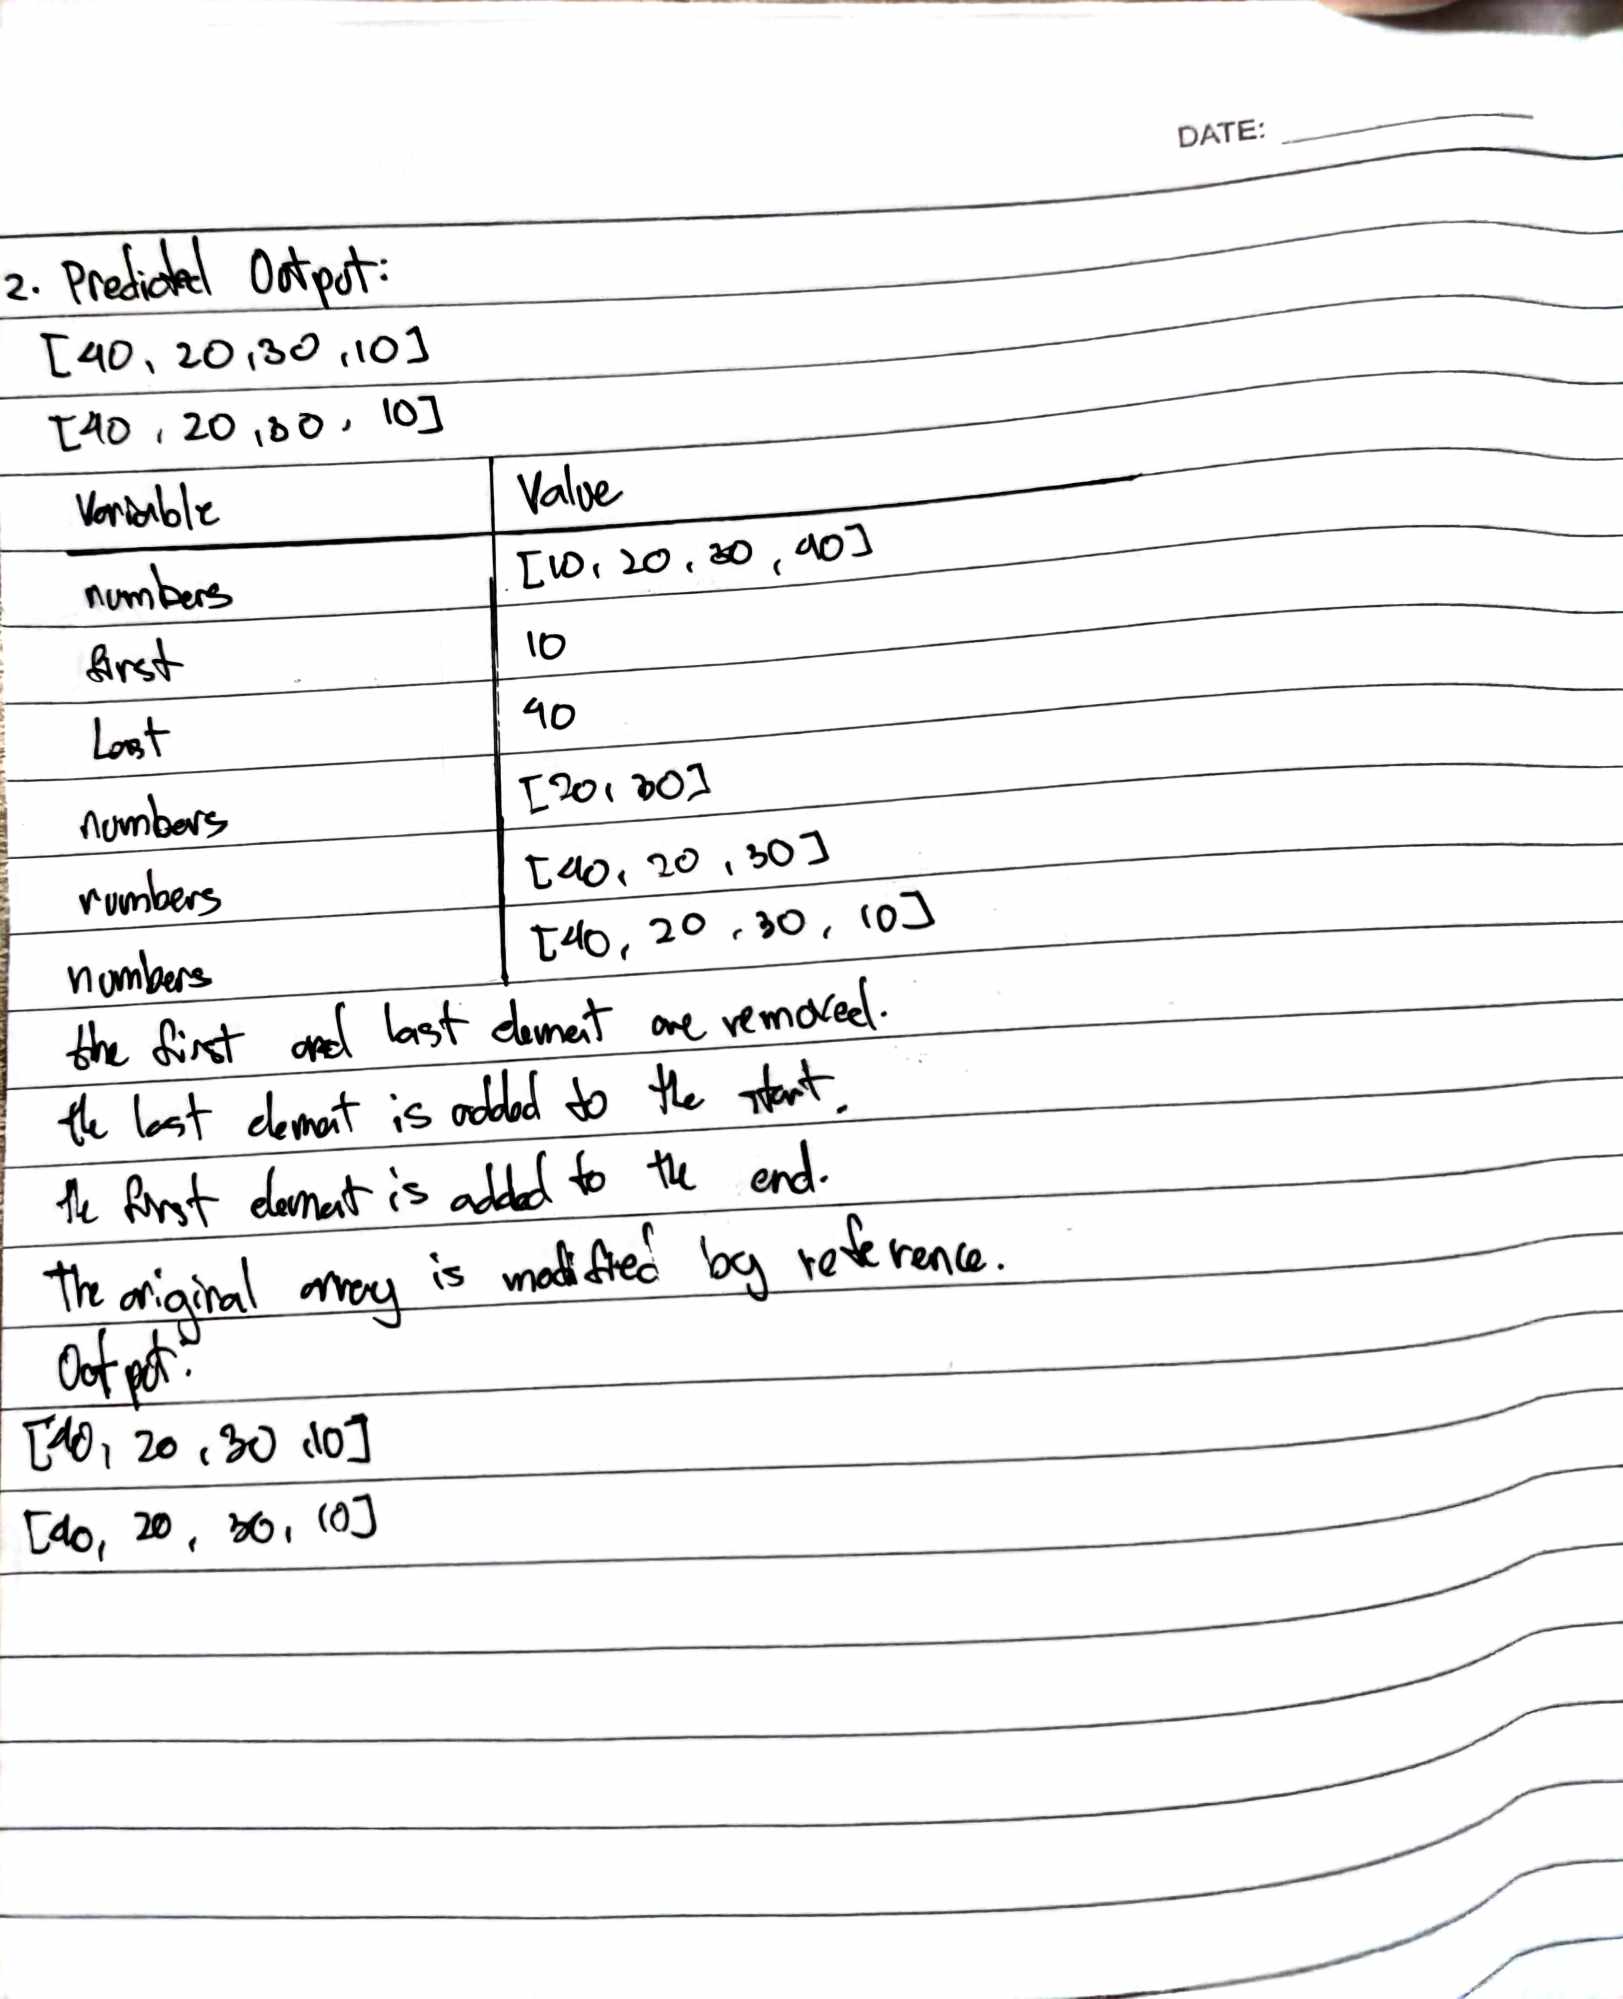 DATE:
2. Predicted Output:
[40, 20, 30, 10]
[40, 20, 30, 10]
Variable Value
numbers [10, 20, 30, 40]
first 10
Last 40
numbers [20, 30]
numbers [40, 20, 30]
numbers [40, 20, 30, 10]
the first and last element are removed.
the last element is added to the start.
the first element is added to the end.
The original array is modified by reference.
Output:
[40, 20, 30, 10]
[40, 20, 30, 10]